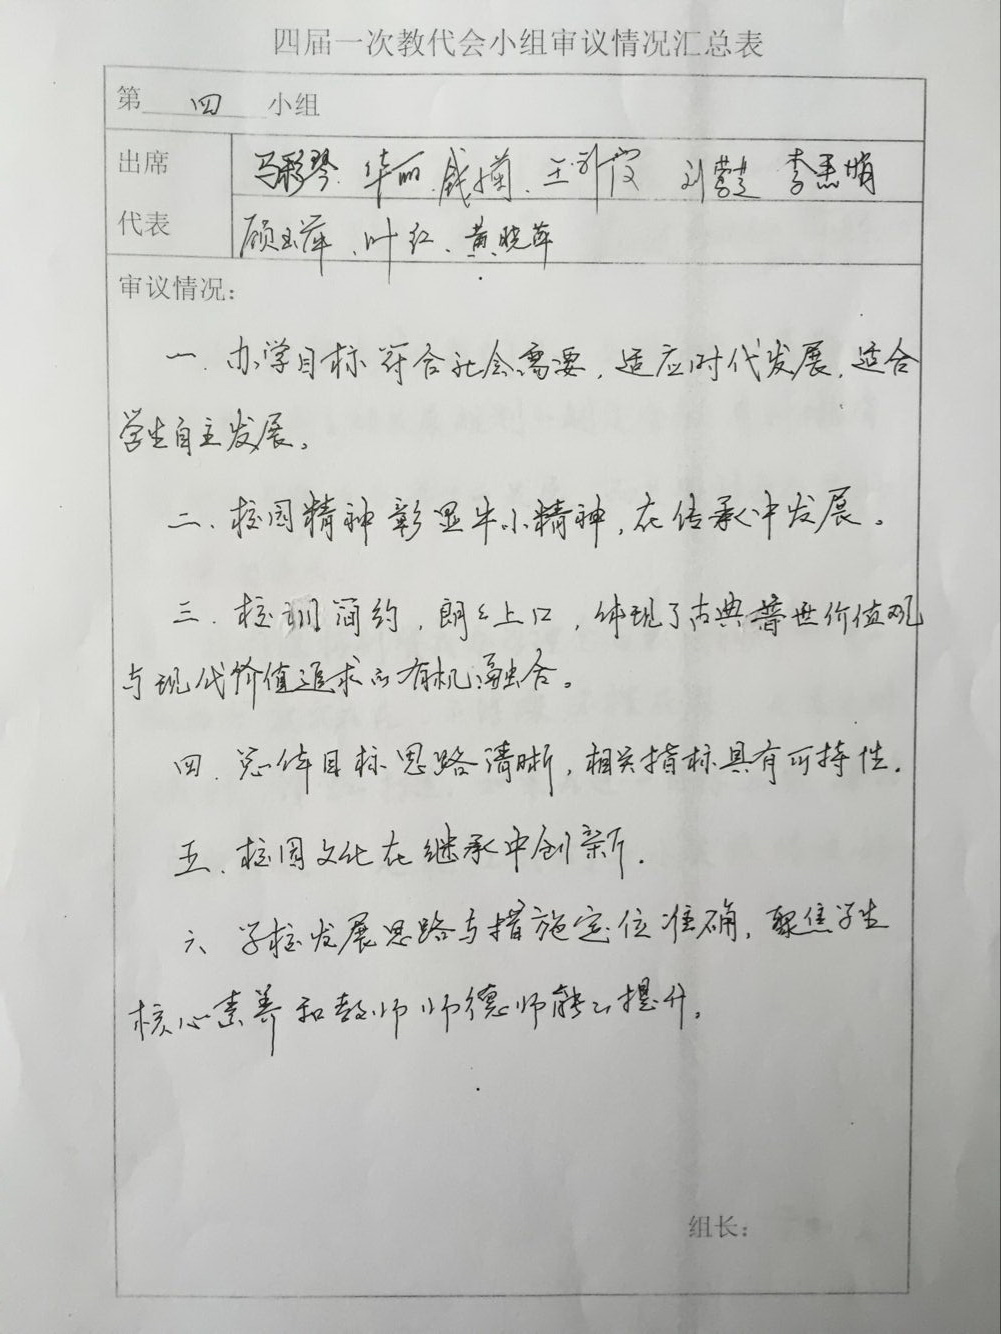 四届一次教代会小组审议情况汇总表
第 四 小组
出席
马彩琴、华丽、钱菊、王引霞 刘营芝 李黑娟
代表
顾玉萍、叶红、黄晓萍
审议情况：
一、办学目标符合社会需要，适应时代发展，适合
学生自主发展。
二、校园精神彰显牛小精神，在传承中发展。
三、校训简约，朗朗上口，体现了古典普世价值观
与现代价值追求的有机融合。
四、总体目标思路清晰，相关指标具有可持性。
五、校园文化在继承中创新。
六、学校发展思路与措施定位准确，聚焦学生
核心素养和教师师德师能的提升。
组长：